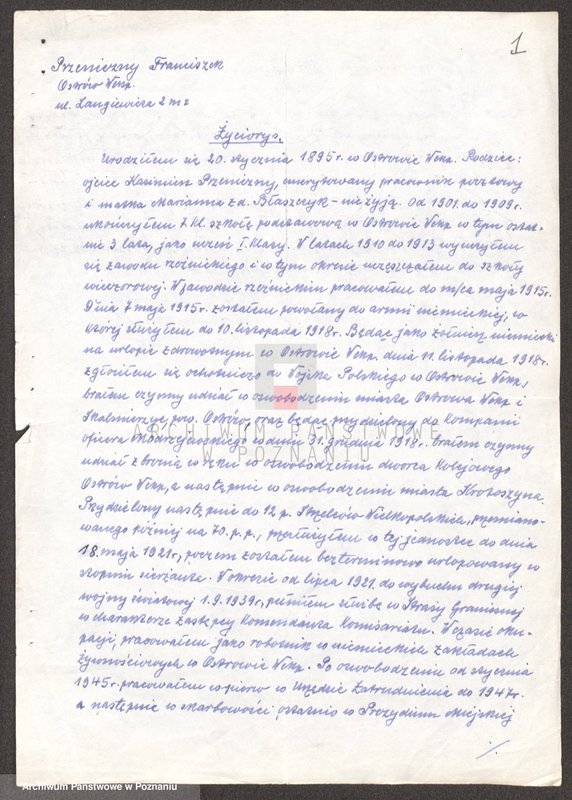 1
Przeniczny Franciszek
Ostrów Wlkp.
ul. Langiewicza 2 m 2
Życiorys.
Urodziłem się 20. stycznia 1895 r. w Ostrowie Wlkp. Rodzice:
ojciec Kazimierz Przeniczny, emerytowany pracownik pocztowy
i matka Marianna z d. Błaszczyk - nie żyją. Od 1901. do 1909.
ukończyłem 7 kl. szkołę podstawową w Ostrowie Wlkp. w tym ostat-
nie 3 lata, jako uczeń I. klasy. W latach 1910 do 1913 wyuczyłem
się zawodu rzeźnickiego i w tym okresie uczęszczałem do szkoły
wieczorowej. W zawodzie rzeźnickim pracowałem do m/ca maja 1915 r.
Dnia 7 maja 1915 r. zostałem powołany do armii niemieckiej, w
której służyłem do 10. listopada 1918 r. Będąc jako żołnierz niemiecki
na urlopie zdrowotnym w Ostrowie Wlkp. dnia 11. listopada 1918 r.
zgłosiłem się ochotniczo do Wojska Polskiego w Ostrowie Wlkp.,
brałem czynny udział w oswobodzeniu miasta Ostrowa Wlkp. i
Skalmierzyc pow. Ostrów, oraz będąc przydzielony do Kompanii
oficera w dniu 31. grudnia 1918 r. brałem czynny
udział z bronią w ręku w oswobodzeniu dworca kolejowego
Ostrów Wlkp., a następnie w oswobodzeniu miasta Krotoszyna.
Przydzielony następnie do 12 p. Strzelców Wielkopolskich, przemiano-
wanego później na 70. p.p., przesłużyłem w tej jednostce do dnia
18. maja 1921 r., poczem zostałem bezterminowo urlopowany w
stopniu sierżanta. W okresie od lipca 1921. do wybuchu drugiej
wojny światowej 1.9.1939 r., pełniłem służbę w Straży Granicznej
w charakterze zastępcy Komendanta Komisariatu. W czasie oku-
pacji, pracowałem jako robotnik w niemieckich zakładach
żywnościowych w Ostrowie Wlkp. Po oswobodzeniu od stycznia
1945 r. pracowałem wpierw w Urzędzie Zatrudnienia do 1947 r.
a następnie w skarbowości ostatnio w Prezydium Miejskiej
./.
ARCHIWUM PAŃSTWOWE
W POZNANIU
Archiwum Państwowe w Poznaniu